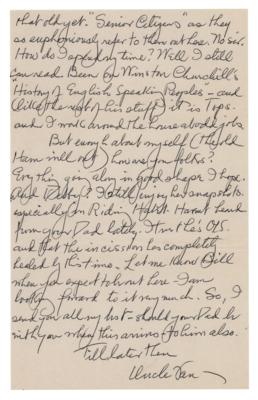 that old yet. "Senior Citizens" as they
as euphoniously refer to them out here. No sir.
How do I spend my time? Well, I still
can read. Been by Winston Churchill's
"History of English Speaking Peoples" - and
like the rest of his stuff, it is Tops.
and I work around the house at odd jobs
But enough about myself (the old
Ham will out) how are you folks?
Everything in good shape I hope.
And Debby? I still enjoy her snapshots
especially in Ridin' Habit. Haven't heard
from your Dad lately. Trust he's O.K.
and that the incission has completely
healed by this time. Let me know Bill
when you expect to be out here. I am
looking forward to it very much. So, I
send you all my best - should your Dad be
with you when this arrives to him also.
Till later then
Uncle Jan